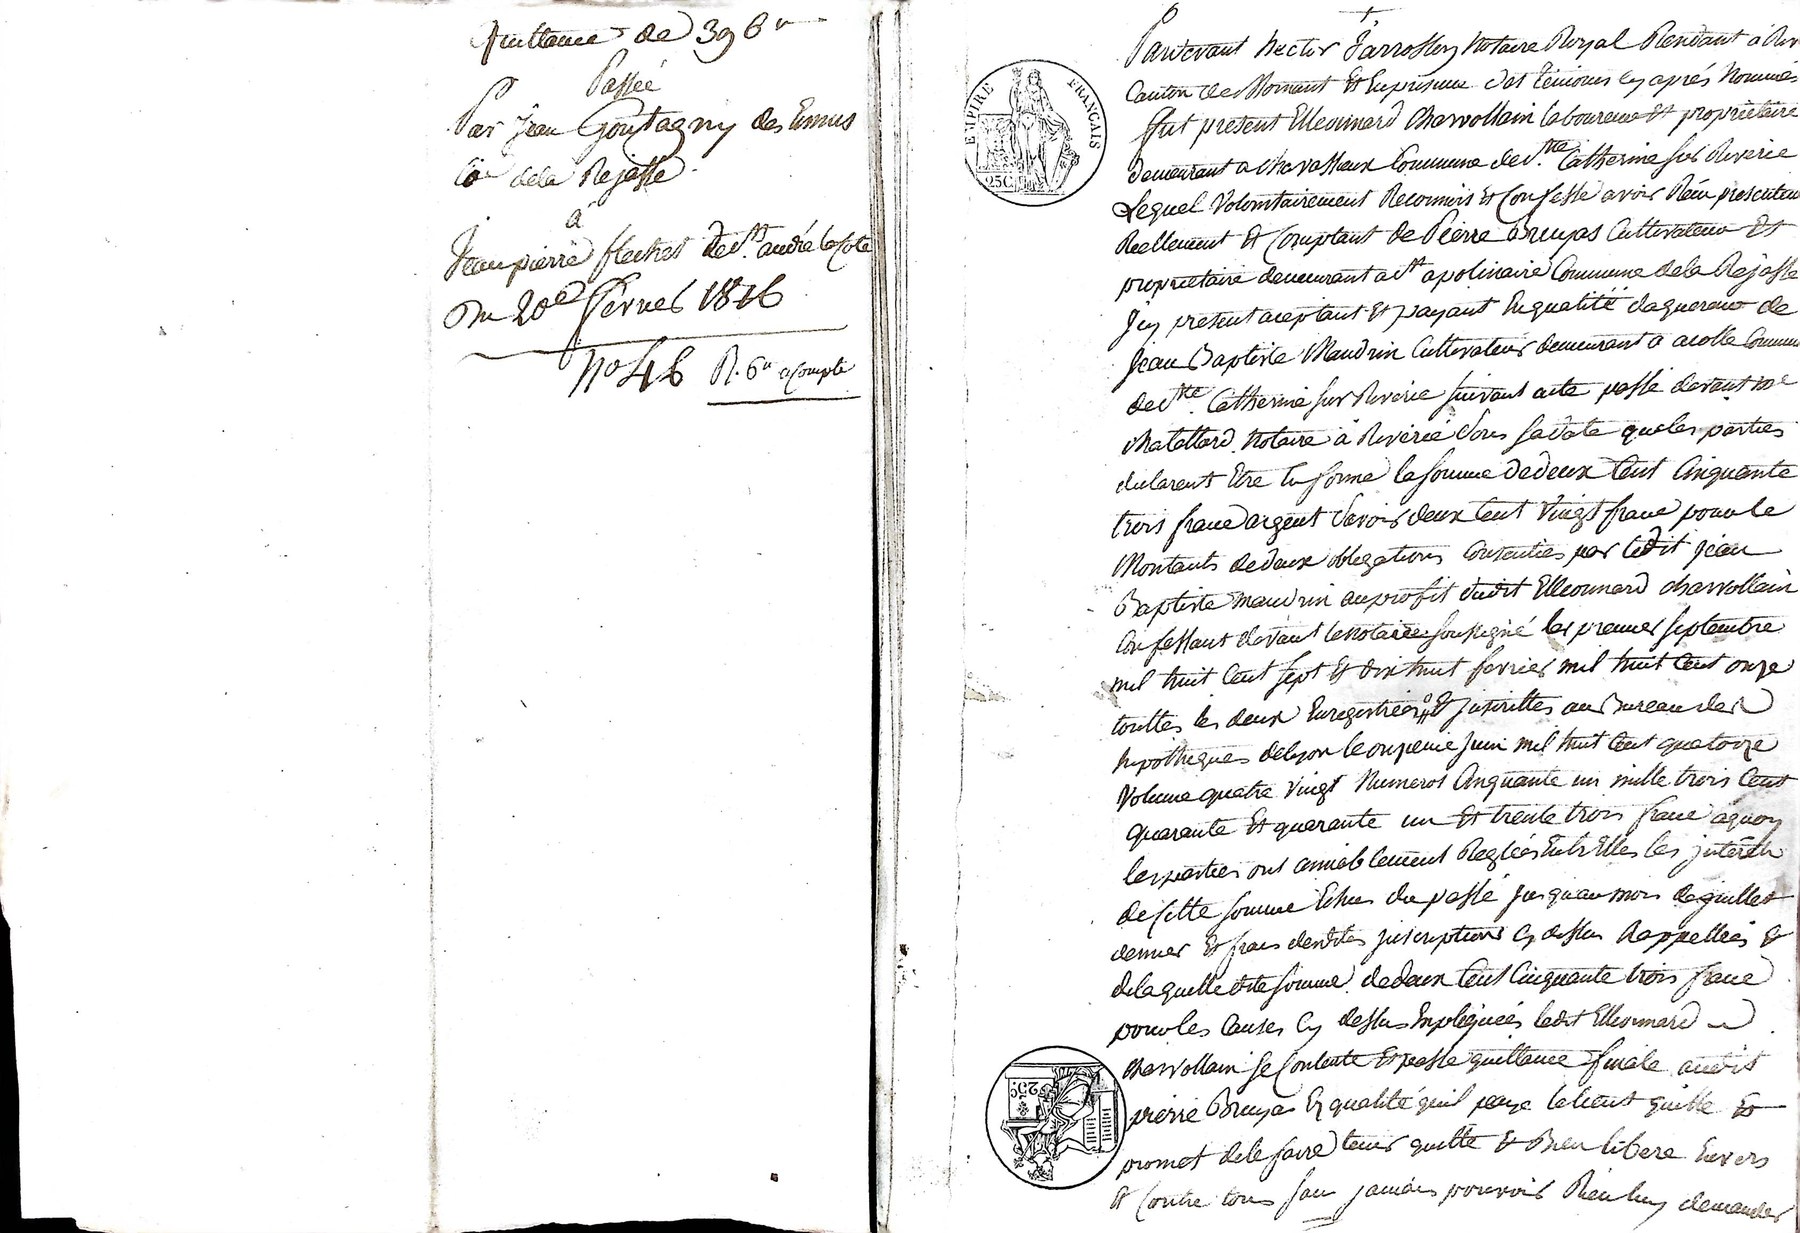 quittance de 396 #
Passée
Par Jean Goutagny des Emus
Coe de la Rejasse
à
Jean pierre flechet de St andré la Cote
Du 20e fevrier 1816
No 46 R. 6 # a compte
Pardevant hector Jarrosson Notaire Royal Residant à Riv
Canton de Mornant Et En presence des temoins cy après Nommés
fut present Elleonnard Charvollain laboureur Et proprietaire
demeurant a Chavasseux Commune de Ste Catherine sur Riverie
Lequel Volontairement Reconnois Et Confesse avoir Reçu presentem
Reellement Et Comptant de Pierre Bruyas Cultivateur Et
proprietaire demeurant a St apolinaire Commune de la Rejasse
Jcy present aceptant Et payant En qualité daquereur de
Jean Baptiste Maudrin Cultivateur demeurant a acolle Commune
de Ste Catherine sur Riverie suivant acte passé devant Me
Chatellard Notaire à Riverie Sous sa date que les parties
declarent Etre En forme la somme de deux Cent Cinquante
trois franc argent Savoir deux Cent Vingt franc pour le
Montants de deux obligations Consenties par ledit Jean
Baptiste Maudrin au profit dudit Elleonnard Charvollain
Confessant devant le notaire soussigné les premier septembre
mil huit Cent sept Et dix huit fevrier mil huit Cent onze
touttes les deux Enregistrées Et Jnscrittes au Bureau des
hypotheques de lyon le onzieme Juin mil huit Cent quatorze
Volume quatre Vingt Numeros Cinquante un mille trois Cent
quarante Et quarante un Et trente trois franc aquoy
les parties ont amiablement Reglées Entr Elles les jnterêts
de Cette somme Echus du passé Jusquau mois de juillet
dernier Et frais desdites Jnscriptions Cy dessus Rappellées Et
de laquelle ditte somme de deux Cent Cinquante trois franc
pour les Causes Cy dessus Expliquées ledit Elleonnard
Charvollain se Contente Et passe quittance finale audit
pierre Bruyas En qualité quil paye le tient quitte Et
promet de le faire tenir quitte Et Bien libere Envers
Et Contre tous san jamais pouvoir Rien luy demander
EMPIRE FRANÇAIS
25C
25C